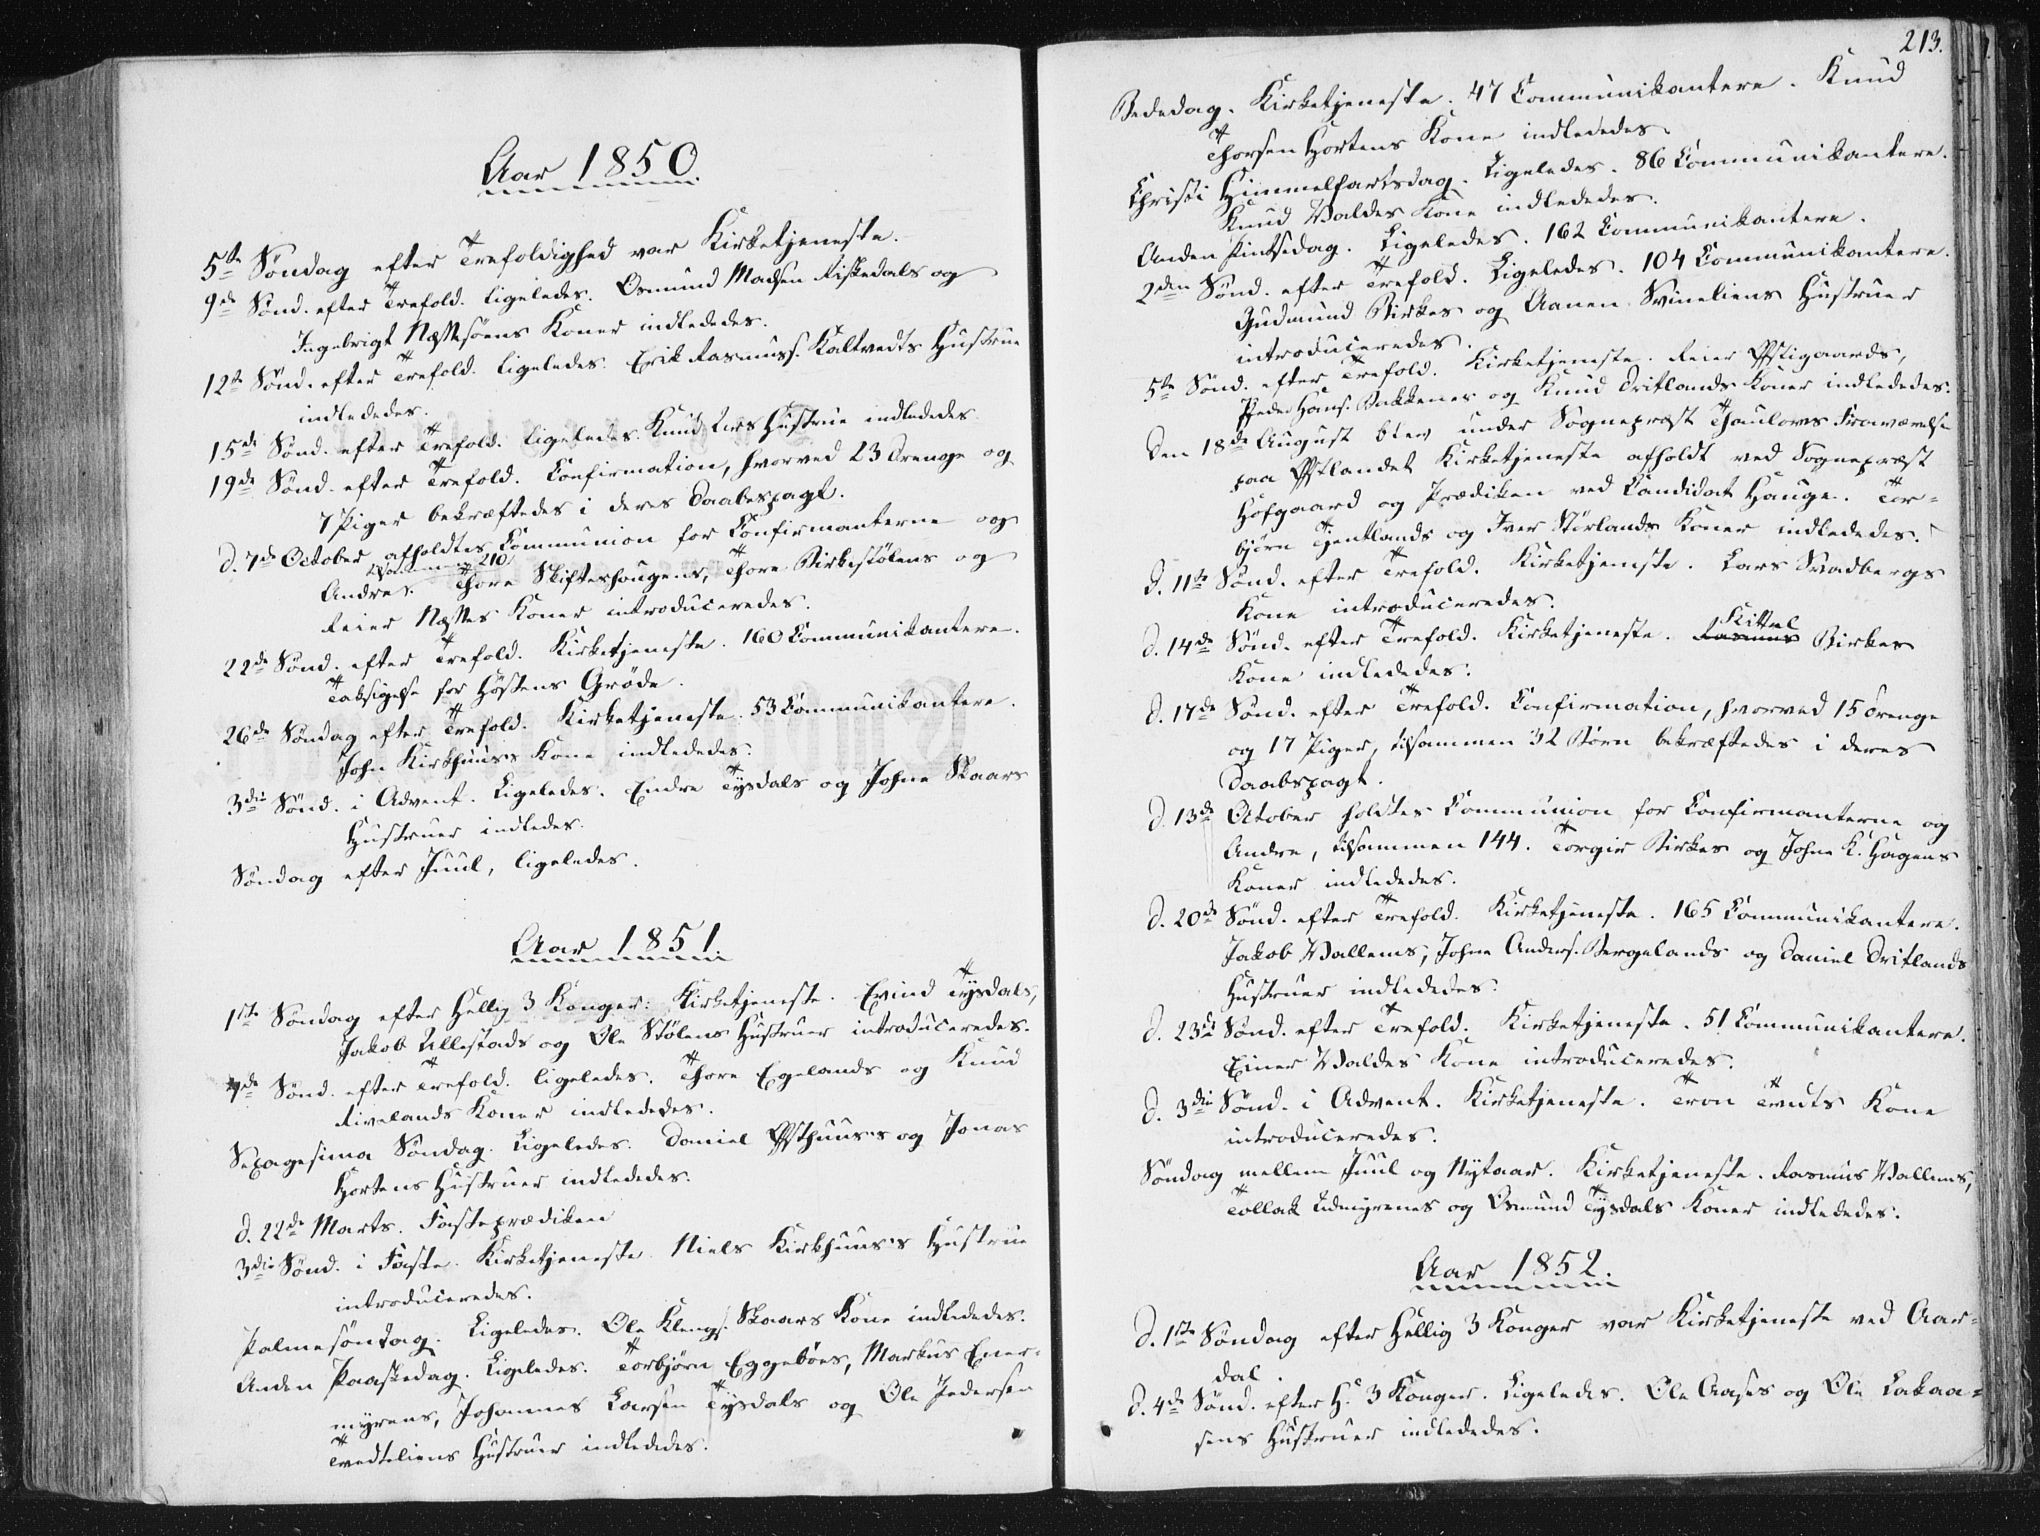 Aar 1850.
5te Søndag efter Trefoldighed var Kirketjeneste.
9de Sønd. efter Trefold. ligeledes. Osmund Madsen Riskedals og
Ingebrigt Næssøens Koner indlededes.
12te Sønd. efter Trefold. ligeledes. Erik Rasmuss. Kaltvedts Hustrue
indlededes.
15de Sønd. efter Trefold. ligeledes. Knud Lies Hustrue indlededes
19de Sønd. efter Trefold. Confirmation, hvorved 23 Drenge og
7 Piger bekræftedes i deres Daabespagt.
d. 7de October afholdtes Communion for Confirmanterne og
tilsammen 210
Andre. Thore Skifteshougens, Thore Birkestølens og
Reier Næsses Koner introduceredes.
22de Sønd. efter Trefold. Kirketjeneste. 160 Communikantere.
Taksigelse for Høstens Grøde.
26de Søndag efter Trefold. Kirketjeneste. 53 Communikantere.
John Kirkhuus's Kone indlededes.
3die Sønd. i Advent. Ligeledes. Endre Tysdals og Johne Skaars
Hustruer indledes.
Søndag efter Juul, ligeledes.
Aar 1851.
1ste Søndag efter Hellig 3 Konger: Kirketjeneste. Evind Tysdals,
Jakob Ullestads og Ole Stølens Hustruer introduceredes.
4de Sønd. efter Trefold. ligeledes. Thore Egelands og Knud
Rivelands Koner indlededes.
Sexagesima Søndag. Ligeledes. Daniel Østhuus's og Jonas
Hortens Hustruer indlededes.
d. 22de Marts. Fasteprædiken
3die Sønd. i Faste. Kirketjeneste. Niels Kirkhuus's Hustrue
introduceredes.
Palmesøntag. Ligeledes. Ole Klengs. Skaars Kone indlededes.
Anden Paaskedag. Ligeledes. Torbjørn Eggebøes, Markus Ener-
myrens, Johannes Larsen Tysdals og Ole Pedersen
Tvedteliens Hustruer indlededes.
213.
Bededag. Kirketjeneste. 47 Communikantere. Knud
Thorsen Hortens Kone indlededes.
Christi Himmelfartsdag. Ligeledes. 86 Communikantere.
Knud Valdes Kone indlededes.
Anden Pintsedag. Ligeledes. 162 Communikantere.
2den Sønd. efter Trefold. Ligeledes. 104 Communikantere.
Gudmund Birkes og Aanen Svineliens Hustruer
introduceredes.
5te Sønd. efter Trefold. Kirketjeneste. Reier Østigaards,
Peder Hans. Bakkenes og Knud Dritlands Koner indlededes.
Den 18de August blev under Sognepræst Thaulows Fraværelse
paa Østlandet Kirketjeneste afholdt ved Sognepræst
Hofgaard og Prædiken ved Candidat Hauge. Tor-
bjørn Tjentlands og Iver Størlands Koner indlededes.
d. 11te Sønd. efter Trefold. Kirketjeneste. Lars Svadbergs
Kone introduceredes.
d. 14de Sønd. efter Trefold. Kirketjeneste. Rasmus Kittel Birkes
Kone indlededes.
d. 17de Sønd. efter Trefold. Confirmation, hvorved 15 Drenge
og 17 Piger, tilsammen 32 Børn bekræftedes i deres
Daabspagt.
d. 13de October holdtes Communion for Confirmanterne og
Andre, tilsammen 144. Torgir Birkes og Johne K. Hagens
Koner indlededes.
d. 20de Sønd. efter Trefold. Kirketjeneste. 165 Communikantere.
Jakob Vallems, Johne Anders. Bergelands og Daniel Dritlands
Hustruer indlededes.
d. 23de Sønd. efter Trefold. Kirketjeneste. 51 Communikantere.
Einer Valdes Kone introduceredes.
d. 3die Sønd. i Advent. Kirketjeneste. Tron Tveits Kone
introduceredes.
Søndag mellem Juul og Nytaar. Kirketjeneste. Rasmus Vallems,
Tollak Lidmyrenes og Osmund Tysdals Koner indlededes.
Aar 1852.
d. 1ste Søndag efter Hellig 3 Konger var Kirketjeneste ved Aar-
dal.
d. 4de Sønd. efter H. 3 Konger. Ligeledes. Ole Aases og Ole Lakaa-
sens Hustruer indlededes.